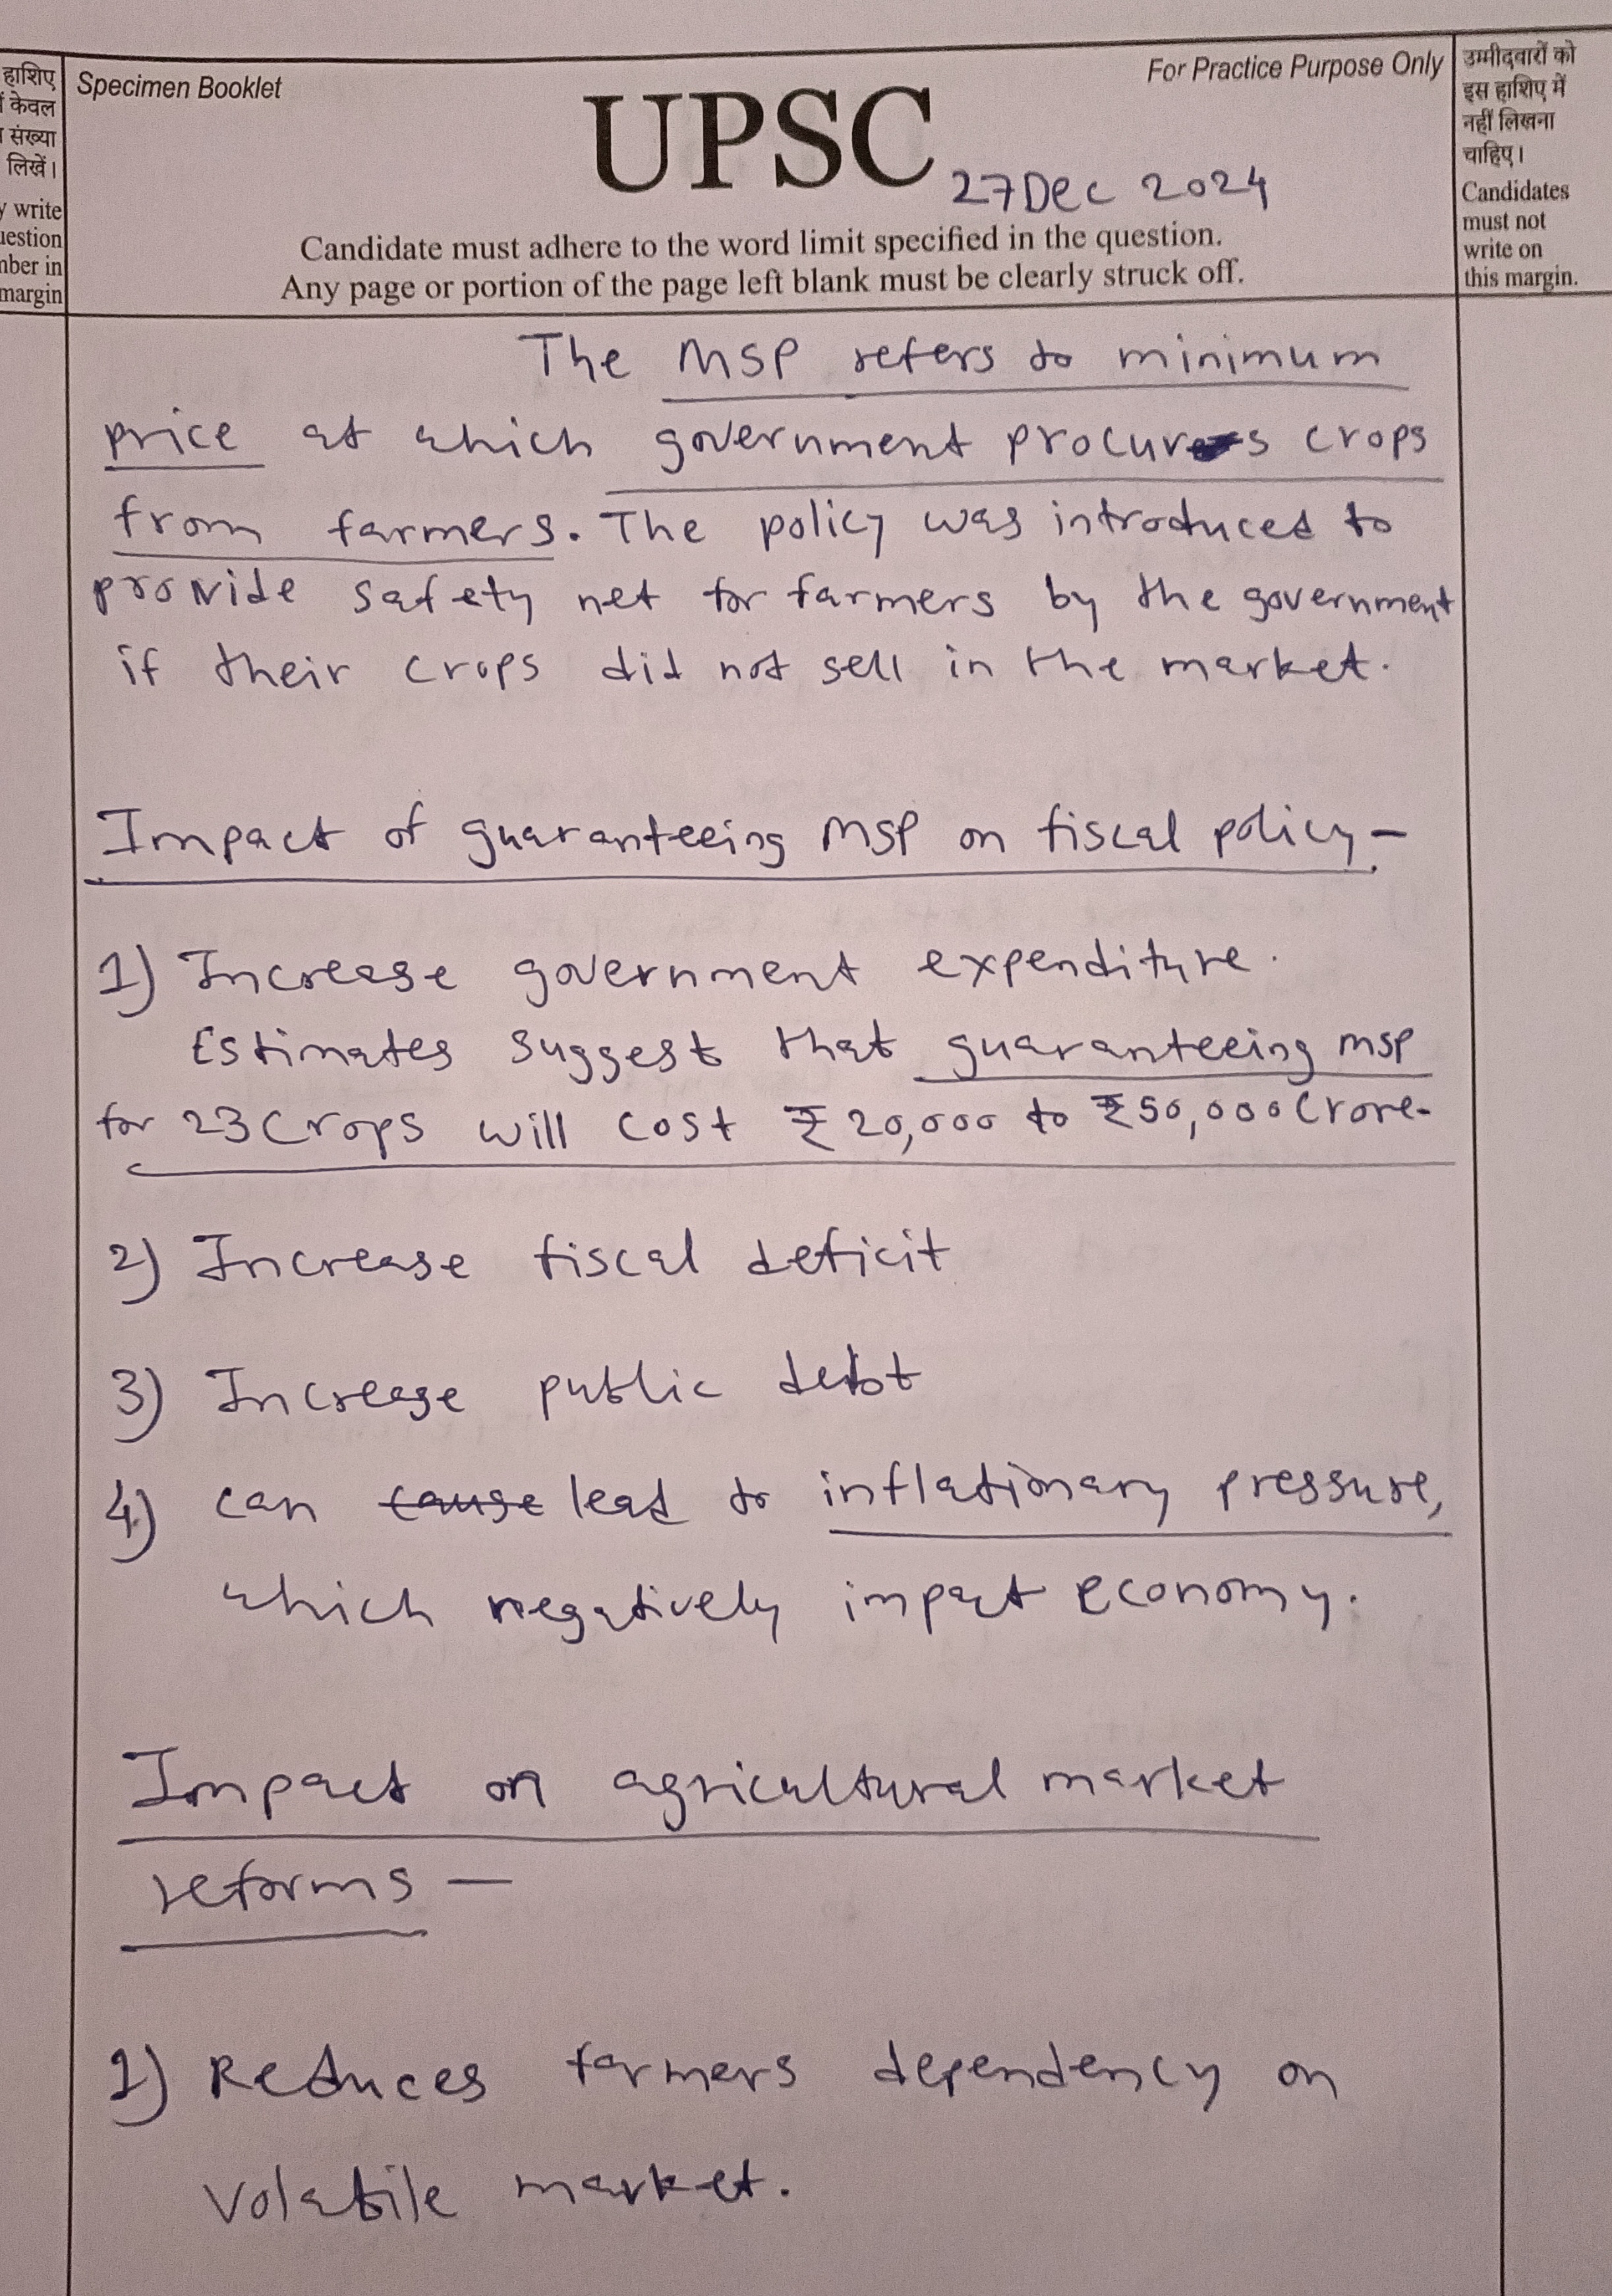 हाशिए
केवल
संख्या
लिखें।
write
margin
Specimen Booklet
For Practice Purpose Only
UPSC
27 Dec 2024
Candidate must adhere to the word limit specified in the question.
Any page or portion of the page left blank must be clearly struck off.
उम्मीदवारों को
इस हाशिए में
नहीं लिखना
चाहिए।
Candidates
must not
write on
this margin.
The MSP refers to minimum
price at which government procures crops
from farmers. The policy was introduced to
provide safety net for farmers by the government
if their crops did not sell in the market.
Impact of guaranteeing MSP on fiscal policy -
1) Increase government expenditure.
Estimates suggest that guaranteeing MSP
for 23 crops will cost ₹20,000 to ₹50,000 Crore.
2) Increase fiscal deficit
3) Increase public debt
4) can cause lead to inflationary pressure,
which negatively impact economy.
Impact on agricultural market
reforms -
1) Reduces farmers dependency on
volatile market.